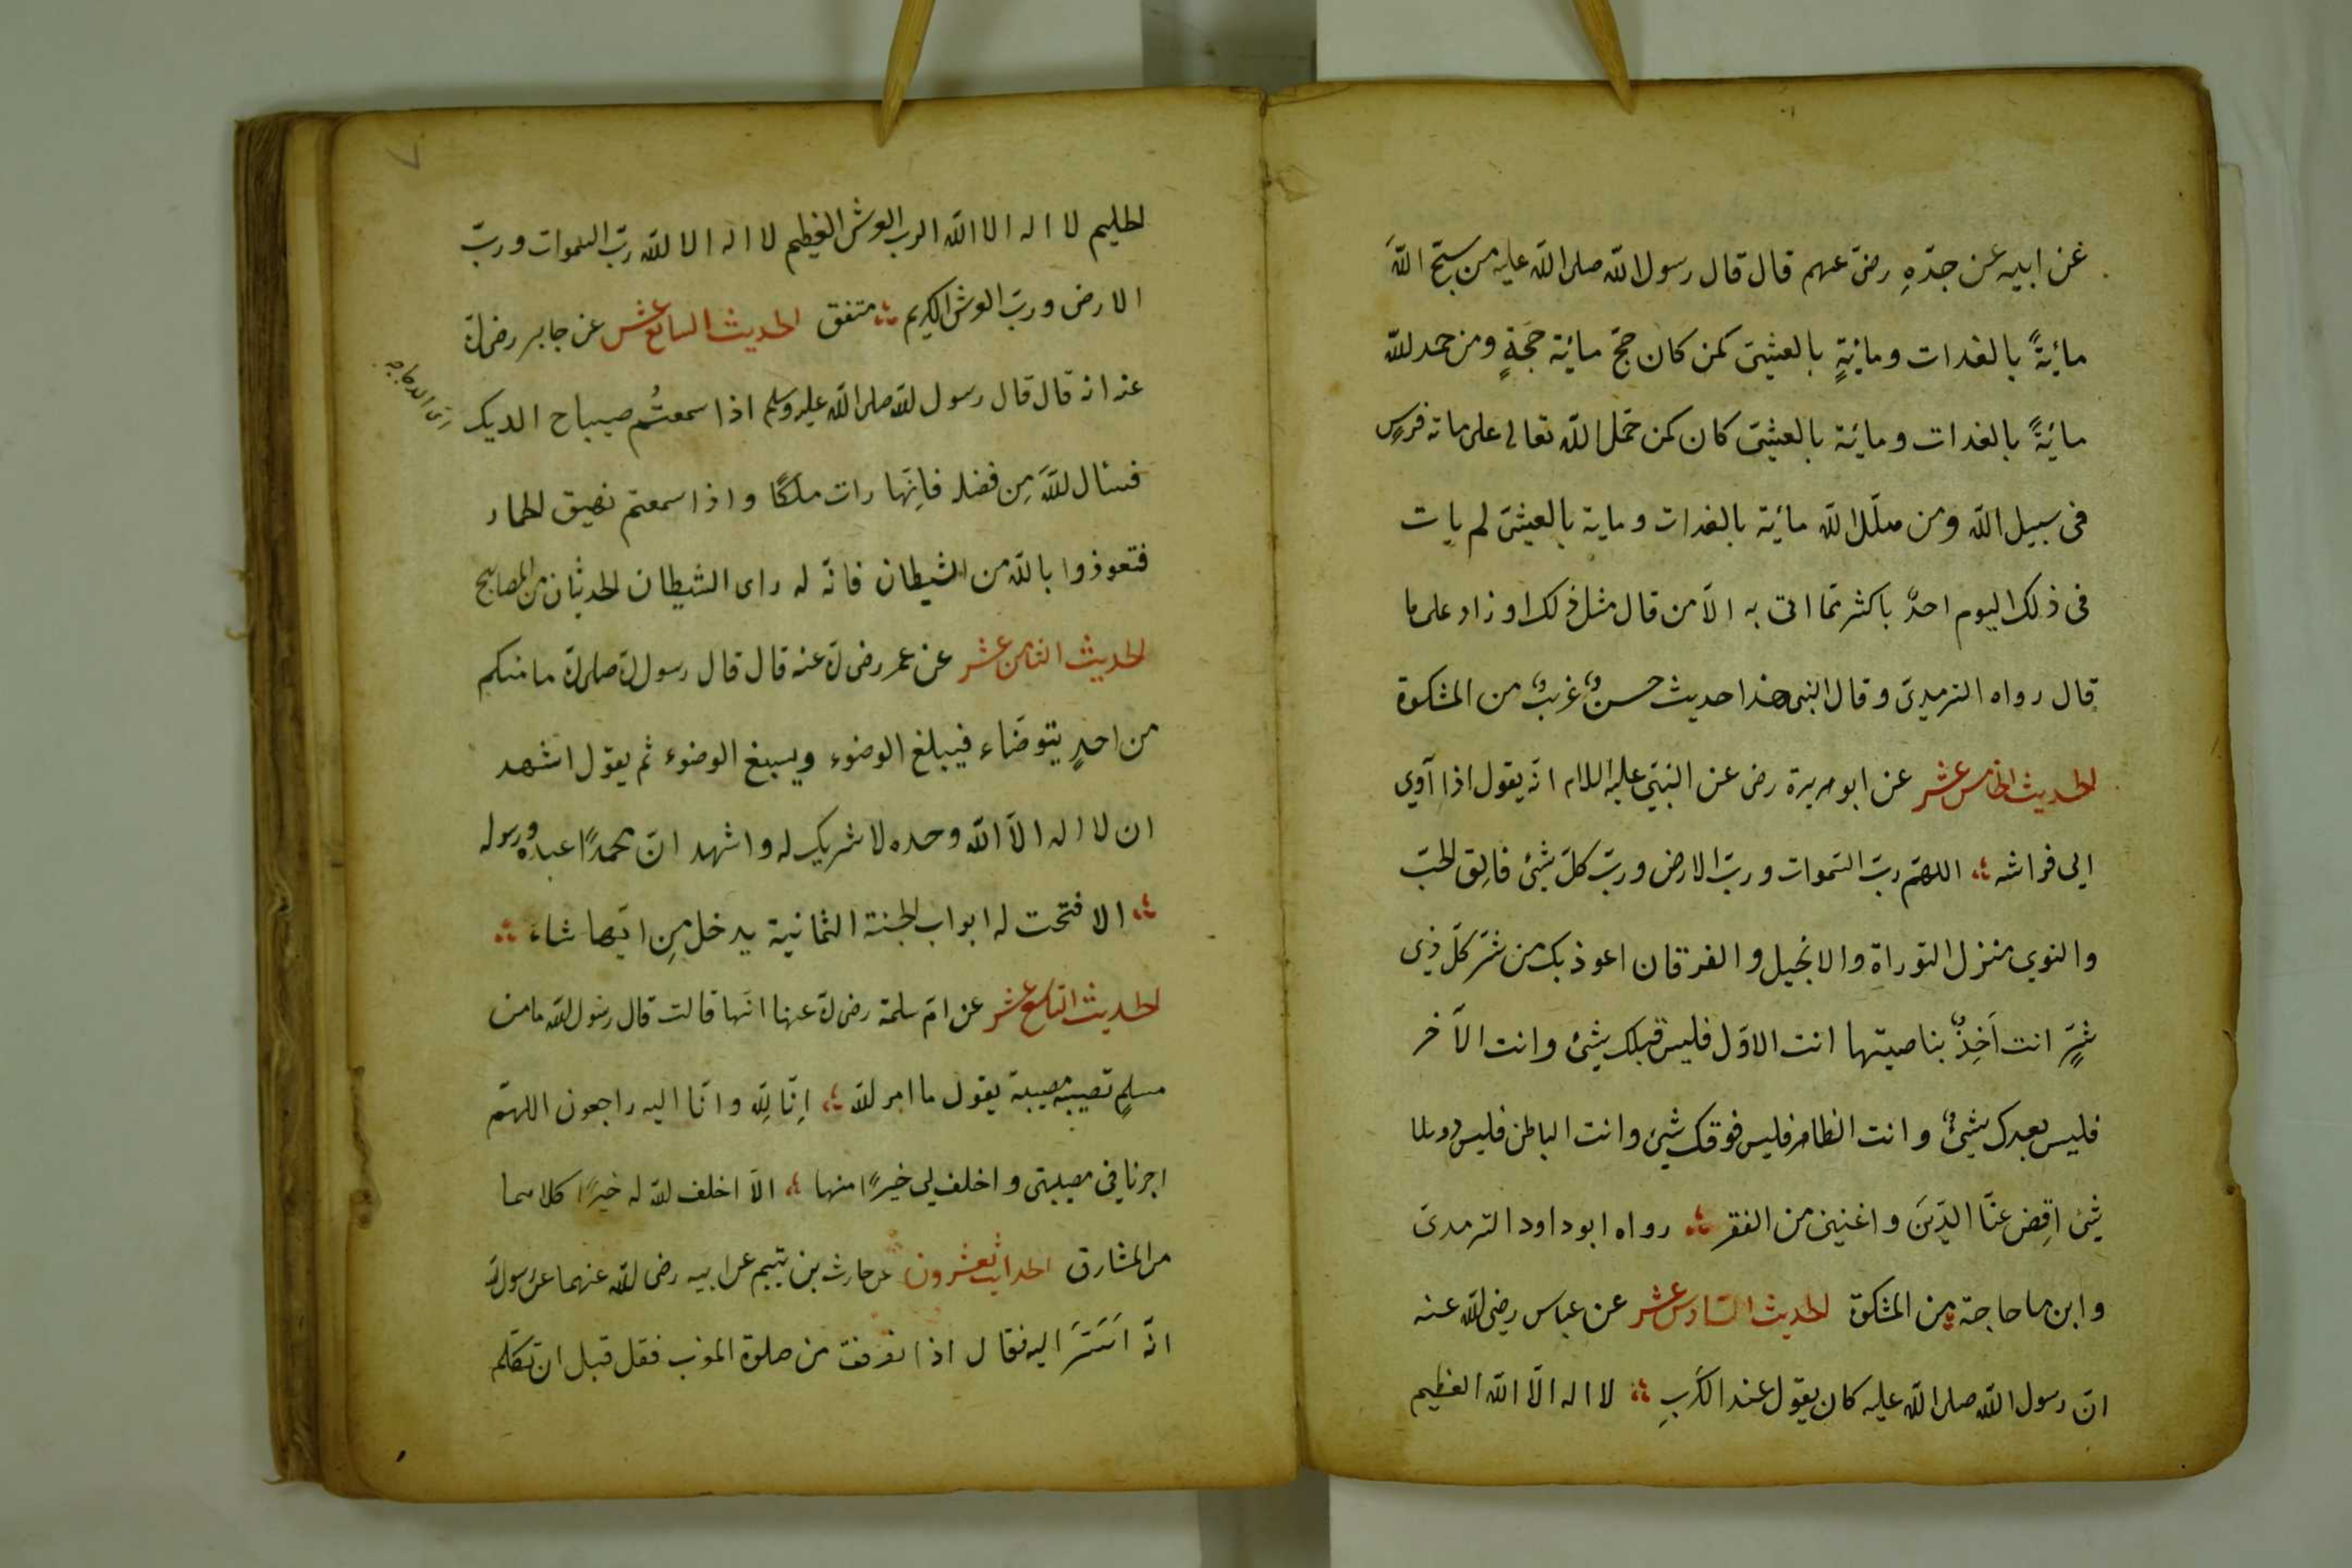 عن ابيه عن جدّهِ رضى عنهم قال قال رسول الله صلى الله عليه من سبّح اللهَ
مائةً بالغدات ومائةٍ بالعشىّ كمن كان حجّ مائة حجةٍ ومن حمد لله
مائةً بالغدات ومائة بالعشىّ كان كمن حمل الله تعالى على مائة فرسٍ
فى سبيل الله ومن هلّل الله مائة بالغدات ومائة بالعشىّ لم يات
فى ذلك اليوم احدٌ باكثر مما اتى به الّا من قال مثل ذلك او زاد على ما
قال رواه الترميدى وقال النبى هذا حديث حسنٌ غريبٌ من المشكوة
الحديث الخامس عشر عن ابو هريرة رضى عن النبىّ عليه السلام انّه يقول اذا آوي
الي فراشه اللهمّ ربّ السّموات وربّ الارض وربّ كلّ شيئ فالِق الحبّ
والنوي منزل التوراة والانجيل والفرقان اعوذ بك من شرّ كلّ ذي
شرٍّ انت آخِذٌ بناصيتها انت الاوّل فليس قبلك شيئ وانت الآخر
فليس بعدك شيئٌ وانت الظاهر فليس فوقك شيئ وانت الباطن فليس دونك
شيئ اقِض عنّا الدّينَ واغنينى من الفقر رواه ابو داود الترمدى
وابن ماحاجة من المشكوة الحديث السّادس عشر عن عباس رضى الله عنه
انّ رسول الله صلى الله عليه كان يقول عند الكَربِ لا اله الّا الله العظيم
الحليم لا اله الا الله الرب العرش العظيم لا اله الا الله ربّ السموات وربّ
الارض وربّ العرش الكريم متفق الحديث السابع عشر عن جابر رضى الله
عنه انه قال قال رسول الله صلى الله عليه وسلم اذا سمعتُم صيباح الديك
فسئال اللهَ مِن فضله فانّها رات ملكًا واذا سمعتم نهيق الحمار
فتعوذوا بالله من الشيطان فانّه له راى الشيطان الحديثان من المصابيح
الحديث الثامن عشر عن عمر رضى الله عنه قال قال رسول الله صلى الله ما منكم
من احدٍ يتوضّاء فيبلغ الوضوء ويسبغ الوضوء ثم يقول اشهد
ان لا اله الّا الله وحده لا شريك له واشهد انّ محمدًا عبده ورسوله
الا فتحت له ابواب الجنة الثمانية يدخل مِن ايّها شاء
الحديث التاسع عشر عن امّ سلمة رضى الله عنها انّها قالت قال رسول الله ما من
مسلمٍ تصيبه مصيبة يقول ما امر الله اِنّا لِله وانّا اليه راجعون اللهمّ
اجرنا في مصيبتى واخلف لي خيرًا منها الّا اخلف الله له خيرًا كلاهما
من المشارق الحديث العشرون عن حارث بن تميم عن ابيه رضى الله عنهما عن رسول الله
انّه اَسَرَّ اليه فقال اذا انصرفت من صلوة المغرب فقل قبل ان تكلّم